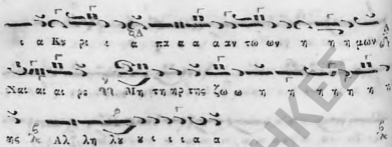 ι α Κυ ρι ι α πα α α αν τω ων η η η μων
Και αι αι ρι Μη τη ηρ της ζω ω η η η η η
ης Αλ λη λου ου ι ι α α